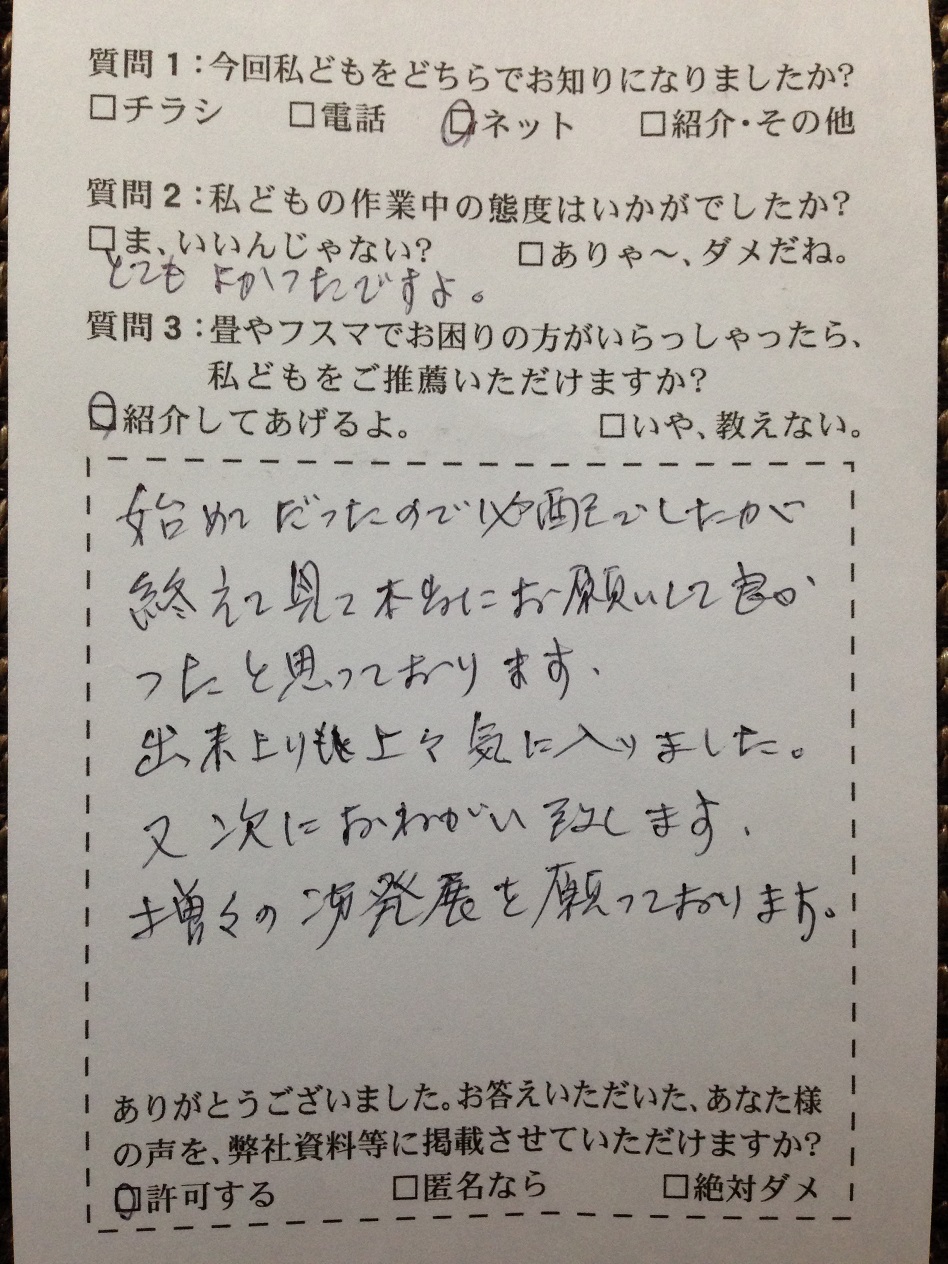 質問1:今回私どもをどちらでお知りになりましたか?
□チラシ □電話 □ネット □紹介・その他
質問2:私どもの作業中の態度はいかがでしたか?
□ま、いいんじゃない? □ありゃ〜、ダメだね。
とてもよかったですよ。
質問3:畳やフスマでお困りの方がいらっしゃったら、
私どもをご推薦いただけますか?
□紹介してあげるよ。 □いや、教えない。
始めてだったので心配でしたが
終えて見て本当にお願いして良か
ったと思っております。
出来上りも上々気に入りました。
又次におねがい致します。
増々の発展を願っております。
ありがとうございました。お答えいただいた、あなた様
の声を、弊社資料等に掲載させていただけますか?
□許可する □匿名なら □絶対ダメ